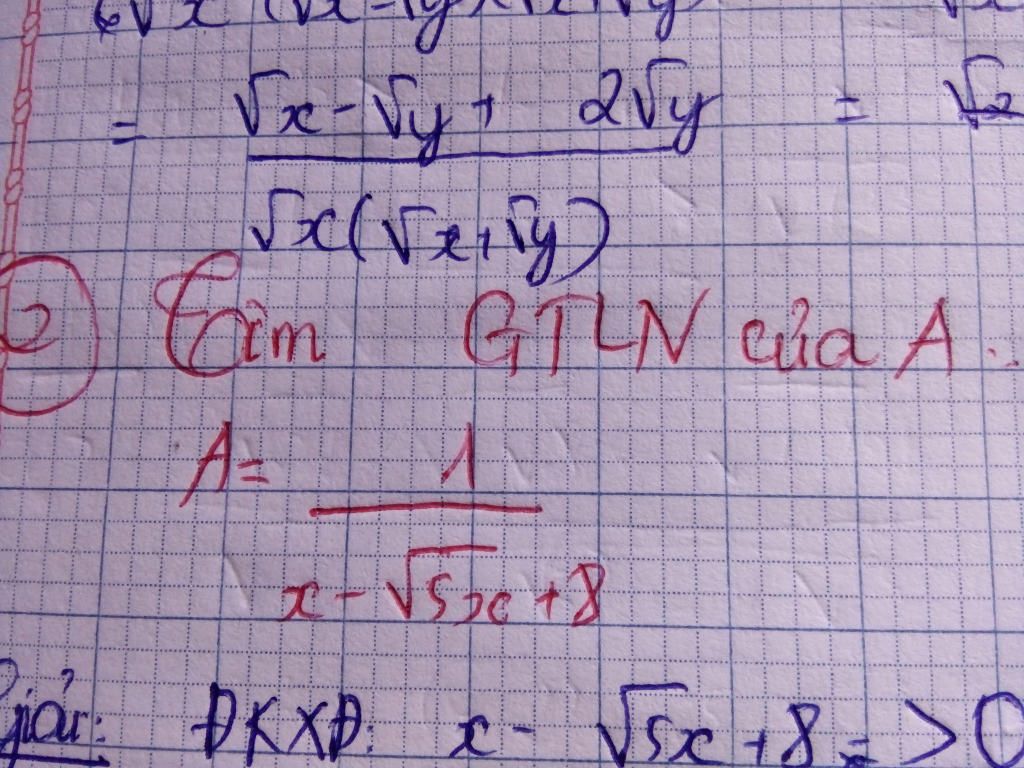 = √x - √y + 2√y / √x(√x + √y) =
2 Tìm GTLN của A.
A = 1 / x - √5x + 8
Giải: ĐKXĐ: x - √5x + 8 = > 0